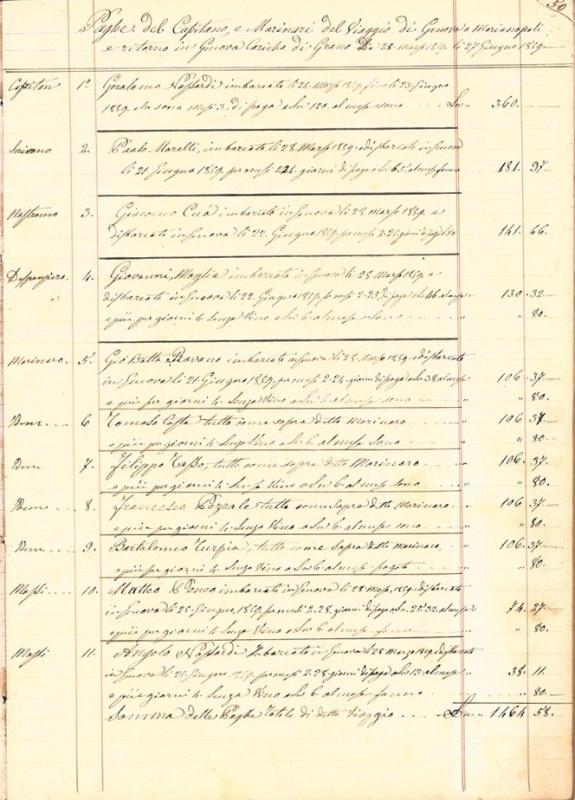 50
Paghe del Capitano, e Marinari del Viaggio di Genova a Marianopoli
e ritorno in Genova Caricho di Grano 28 Marzo 1859 li 27 Giugno 1859
Capitan 1° Gerolamo imbarcato li 24 Marzo 1859 li 23 Giugno
1859 che sono mesi 3 di paga a Ln 120 al mese sono Ln 360 —
Scrivano 2. Paolo Morelli, imbarcato li 28 Marzo 1859 e disbarcato in Genova
li 21 Giugno 1859 per mesi 2.24 giorni di paga a Ln 65 al mese sono 181. 97.
Nostromo 3. Giacomo imbarcato in Genova li 28 Marzo 1859 e
disbarcato in Genova li 22 Giugno 1859 per mesi 2.25 giorni di paga 141. 66.
Despensiero 4. Giovanni Maglia imbarcato in Genova li 28 Marzo 1859 e
disbarcato in Genova li 22 Giugno 1859 per mesi 2.25 di paga a Ln 46 al mese 130. 32
e più per giorni 4 Senza Vino a Ln 6 al mese sono " 80.
Marinaro. 5. Gio Batta Ravano imbarcato in Genova li 28 Marzo 1859 e disbarcato
in Genova li 21 Giugno 1859 per mesi 2.24 giorni di paga a Ln 38 al mese 106. 37
e più per giorni 4 Senza Vino a Ln 6 al mese sono " 80.
6 Tomaso Costa tutto come sopra detto Marinaro " 106 37
e più per giorni 4 Senza Vino a Ln 6 al mese sono " 80.
7. Filippo Tasso, tutto come sopra detto Marinaro " 106. 37
e più per giorni 4 Senza Vino a Ln 6 al mese sono " 80.
8. Francesco tutto come Sopra detto Marinaro " 106 37
e più per giorni 4 Senza Vino a Ln 6 al mese sono " 80.
9. Bartolomeo Turpia, tutto come Sopra detto Marinaro " 106 37
e più per giorni 4 Senza Vino a Ln 6 al mese " 80.
10. Matteo imbarcato in Genova li 28 1859 disbarcato
in Genova li 25 Giugno 1859 per mesi 2.28 giorni di paga a Ln al mese 74. 27
e più per giorni 4 Senza Vino a Ln 6 al mese sono " 80.
11. Angelo Imbarcato in Genova li 28 Marzo 1859 disbarcato
in Genova li 25 Giugno 1859 per mesi 2.28 giorni di paga a Ln 13 al mese 38. 11.
e più giorni 4 Senza Vino a Ln 6 al mese sono " 80
Somma delle Paghe totale di detto Viaggio Ln 1464 58.